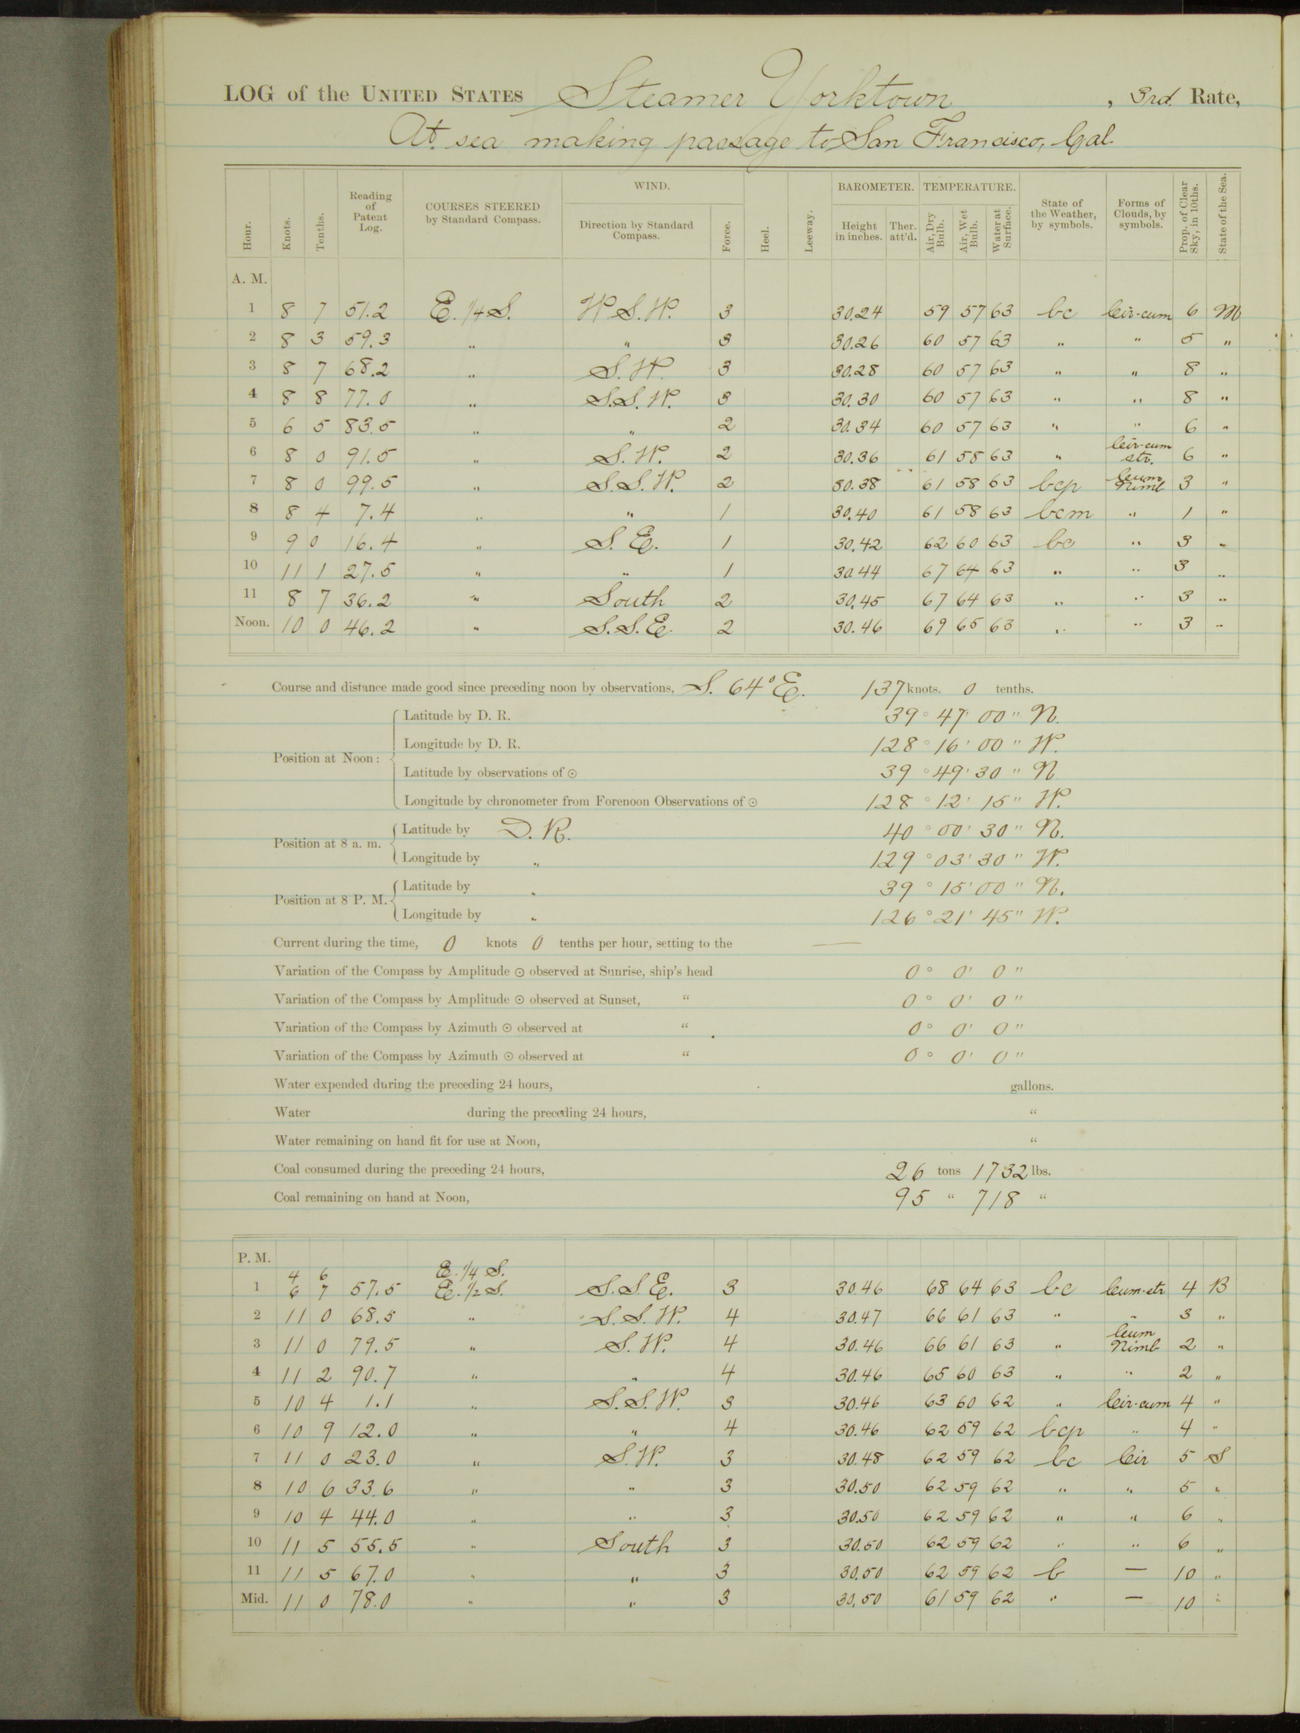 LOG of the UNITED STATES Steamer Yorktown, 3rd. Rate,
At sea making passage to San Francisco, Cal.
Hour. Knots. Tenths. Reading of Patent Log. COURSES STEERED by Standard Compass. WIND. Direction by Standard Compass. Force. Heel. Leeway. BAROMETER. Height in inches. Ther. att'd. TEMPERATURE. Air, Dry Bulb. Air, Wet Bulb. Water at Surface. State of the Weather, by symbols. Forms of Clouds, by symbols. Prop. of Clear Sky, in 10ths. State of the Sea.
A. M.
1 8 7 51.2 E. 1/4 S. W.S.W. 3 30.24 59 57 63 bc Cir-cum 6 M
2 8 3 59.3 " " 3 30.26 60 57 63 " " 5 "
3 8 7 68.2 " S.W. 3 30.28 60 57 63 " " 8 "
4 8 8 77.0 " S.S.W. 3 30.30 60 57 63 " " 8 "
5 6 5 83.5 " " 2 30.34 60 57 63 " " 6 "
6 8 0 91.5 " S.W. 2 30.36 61 58 63 " Cir-cum str. 6 "
7 8 0 99.5 " S.S.W. 2 30.38 61 58 63 bcp Cum Nimb 3 "
8 8 4 7.4 " " 1 30.40 61 58 63 bcm " 1 "
9 9 0 16.4 " S.E. 1 30.42 62 60 63 bc " 3 "
10 11 1 27.5 " " 1 30.44 67 64 63 " " 3 "
11 8 7 36.2 " South 2 30.45 67 64 63 " " 3 "
Noon. 10 0 46.2 " S.S.E. 2 30.46 69 65 63 " " 3 "
Course and distance made good since preceding noon by observations, S. 64° E. 137 knots. 0 tenths.
Position at Noon: Latitude by D. R. 39° 47' 00" N.
Longitude by D. R. 128° 16' 00" W.
Latitude by observations of ☉ 39° 49' 30" N
Longitude by chronometer from Forenoon Observations of ☉ 128° 12' 15" W.
Position at 8 a. m. Latitude by D. R. 40° 00' 30" N.
Longitude by " 129° 03' 30" W.
Position at 8 P. M. Latitude by " 39° 15' 00" N.
Longitude by " 126° 21' 45" W.
Current during the time, 0 knots 0 tenths per hour, setting to the —
Variation of the Compass by Amplitude ☉ observed at Sunrise, ship's head 0° 0' 0"
Variation of the Compass by Amplitude ☉ observed at Sunset, " 0° 0' 0"
Variation of the Compass by Azimuth ☉ observed at " 0° 0' 0"
Variation of the Compass by Azimuth ☉ observed at " 0° 0' 0"
Water expended during the preceding 24 hours, gallons.
Water during the preceding 24 hours, "
Water remaining on hand fit for use at Noon, "
Coal consumed during the preceding 24 hours, 26 tons 1732 lbs.
Coal remaining on hand at Noon, 95 " 718 "
P. M.
4 6 E. 1/4 S.
1 6 7 57.5 E. 1/2 S. S.S.E. 3 30.46 68 64 63 bc Cum-str 4 B
2 11 0 68.5 " S.S.W. 4 30.47 66 61 63 " " 3 "
3 11 0 79.5 " S.W. 4 30.46 66 61 63 " Cum Nimb 2 "
4 11 2 90.7 " " 4 30.46 65 60 63 " " 2 "
5 10 4 1.1 " S.S.W. 3 30.46 63 60 62 " Cir-cum 4 "
6 10 9 12.0 " " 4 30.46 62 59 62 bcp " 4 "
7 11 0 23.0 " S.W. 3 30.48 62 59 62 bc Cir 5 S
8 10 6 33.6 " " 3 30.50 62 59 62 " " 5 "
9 10 4 44.0 " " 3 30.50 62 59 62 " " 6 "
10 11 5 55.5 " South 3 30.50 62 59 62 " " 6 "
11 11 5 67.0 " " 3 30.50 62 59 62 b — 10 "
Mid. 11 0 78.0 " " 3 30.50 61 59 62 " — 10 "